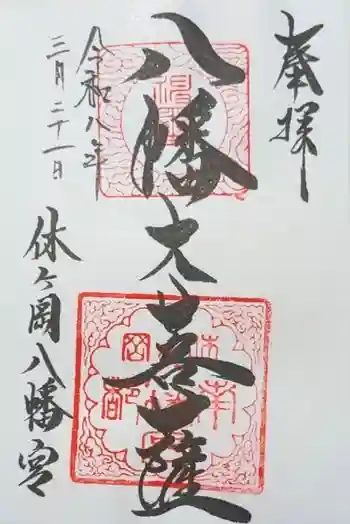 奉拝
八幡大菩薩
令和八年
三月二十一日
休ヶ岡八幡宮